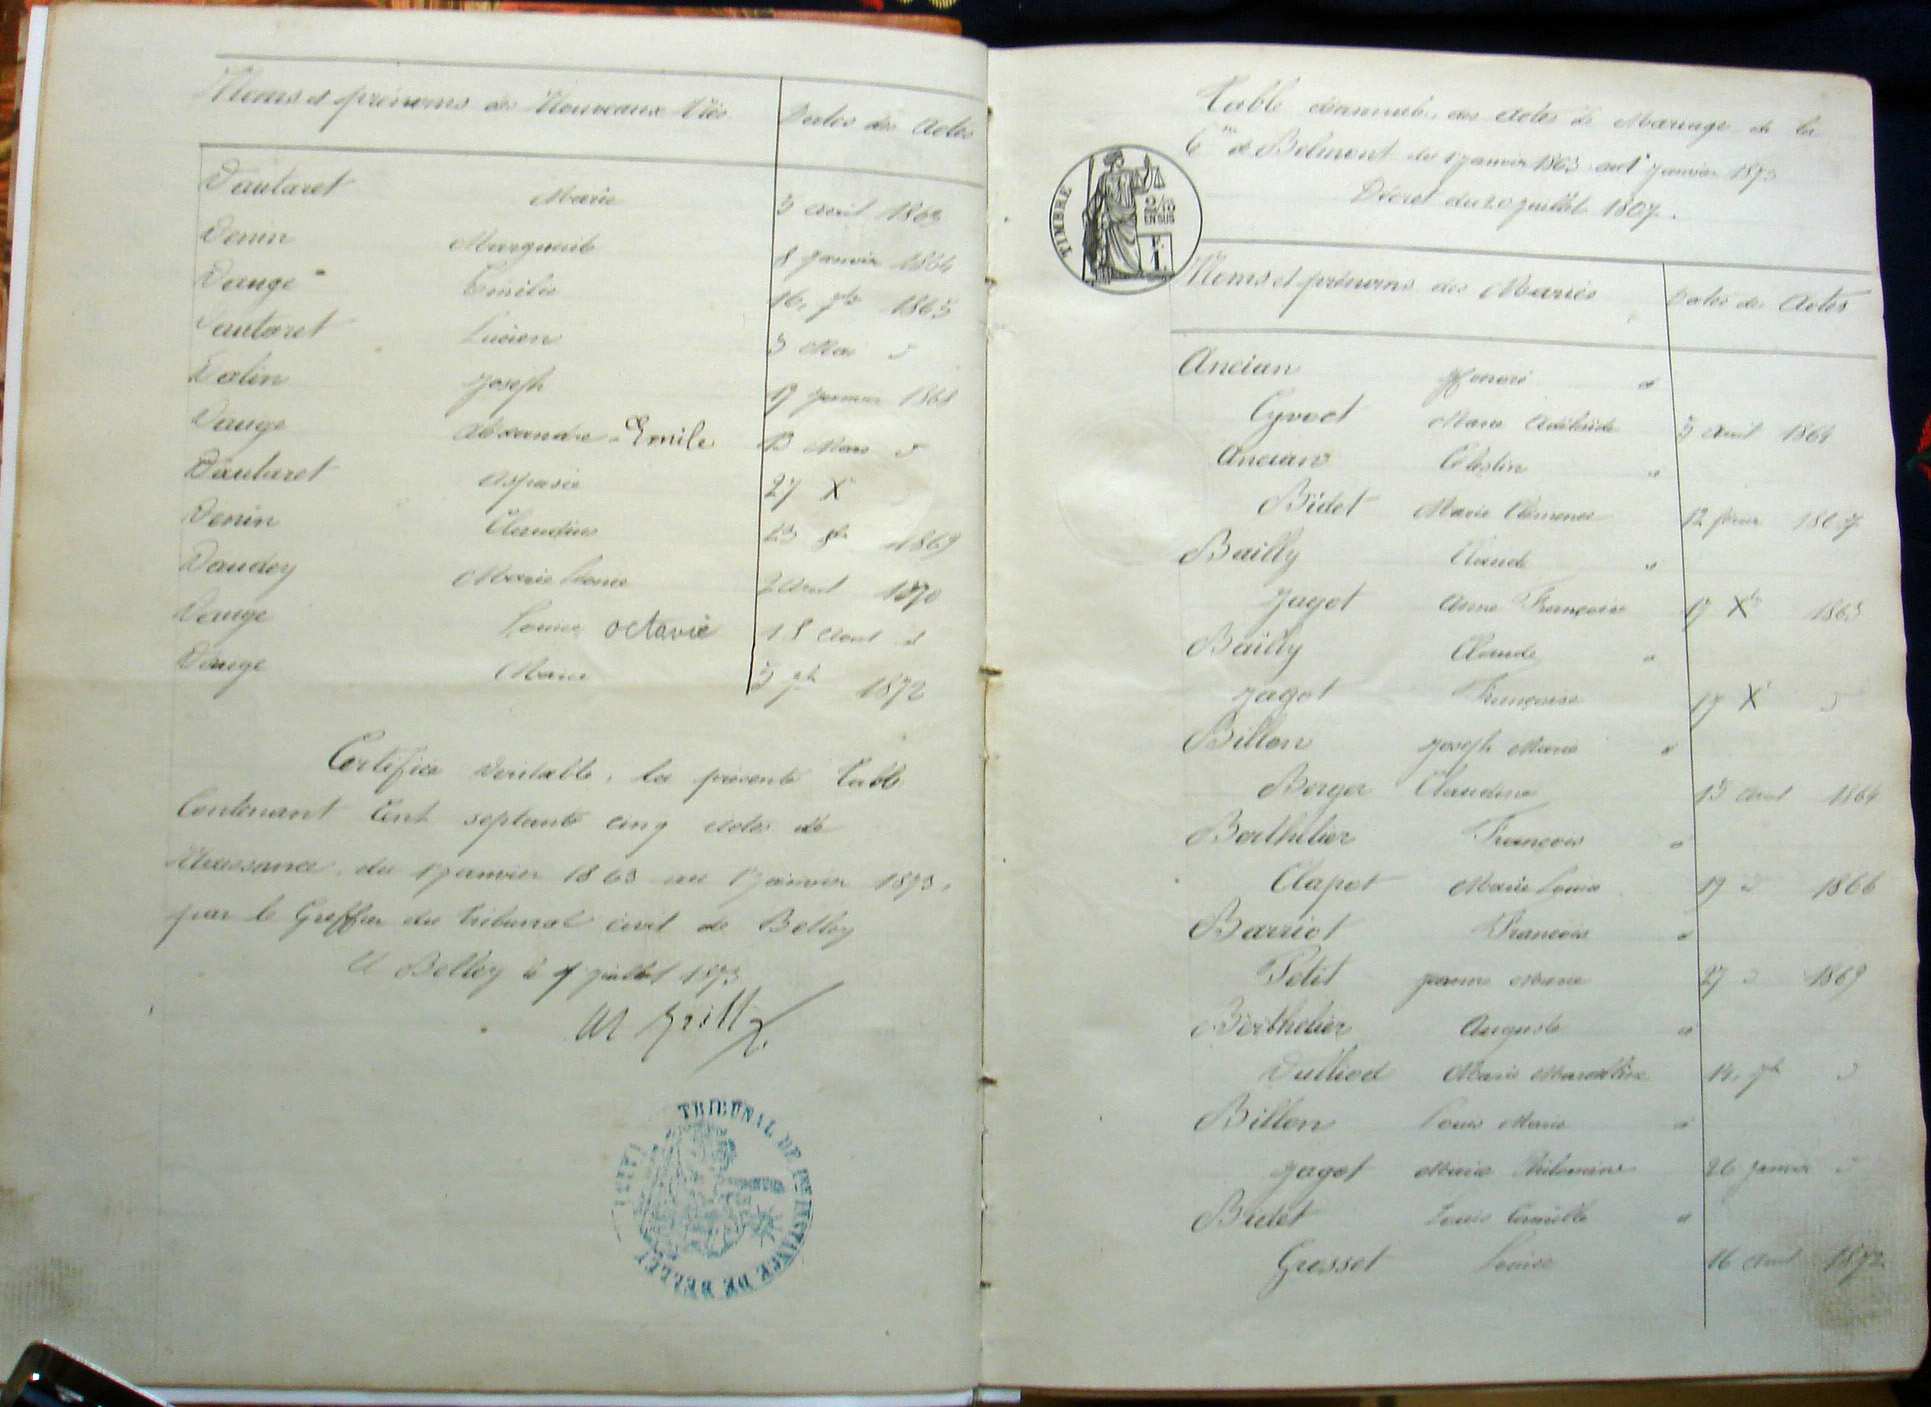 Noms et prénoms des Nouveaux Nés Dates des Actes
Vautaret Marie 3 avril 1863
Venin Marguerite 8 janvier 1864
Vauge Emilie 16 7bre 1865
Vautaret Lucien 3 Mai d
Valin Joseph 19 janvier 1868
Vauge Alexandre-Emile 13 Mars d
Vautaret Aspasie 27 X
Venin Claudine 23 8bre 1869
Vaudey Marie 2 avril 1870
Vauge Louise octavie 18 Aout d
Vauge Marie 5 1872
Certifiée véritable, la présente Table
Contenant Cent septante cinq actes de
Naissance, du 1 janvier 1863 au 1 janvier 1873,
par le Greffier du Tribunal civil de Belley
A Belley le juillet 1873
TRIBUNAL DE 1ère INSTANCE DE BELLEY
(AIN)
Table décennale des actes de Mariage de la
Cne de Belmont du 1 janvier 1863 au 1 janvier 1873
Décret du 20 juillet 1807.
TIMBRE
2/10
EN SUS
F.
1
Noms et prénoms des Mariés Dates des Actes
Ancian Honoré &
Cyvoct Marie Adélaïde 5 avril 1864
Ancian Célestin &
Bidet Marie Clémence 12 février 1867
Bailly Claude &
Jagot Anne Françoise 17 Xbre 1863
Bailly Claude &
Jagot Françoise 17 X d
Billon Joseph Marie &
Berger Claudine 13 avril 1864
Berthelier François &
Clapot Marie Louise 19 d 1866
Barriot François &
Petit Jeanne Marie 27 d 1869
Berthelier Auguste &
Dulliod Marie 14 d
Billon Louis Marie &
Jagot Marie Philomène 26 janvier d
Bidet Louis Camille &
Grosset Louise 16 avril 1872